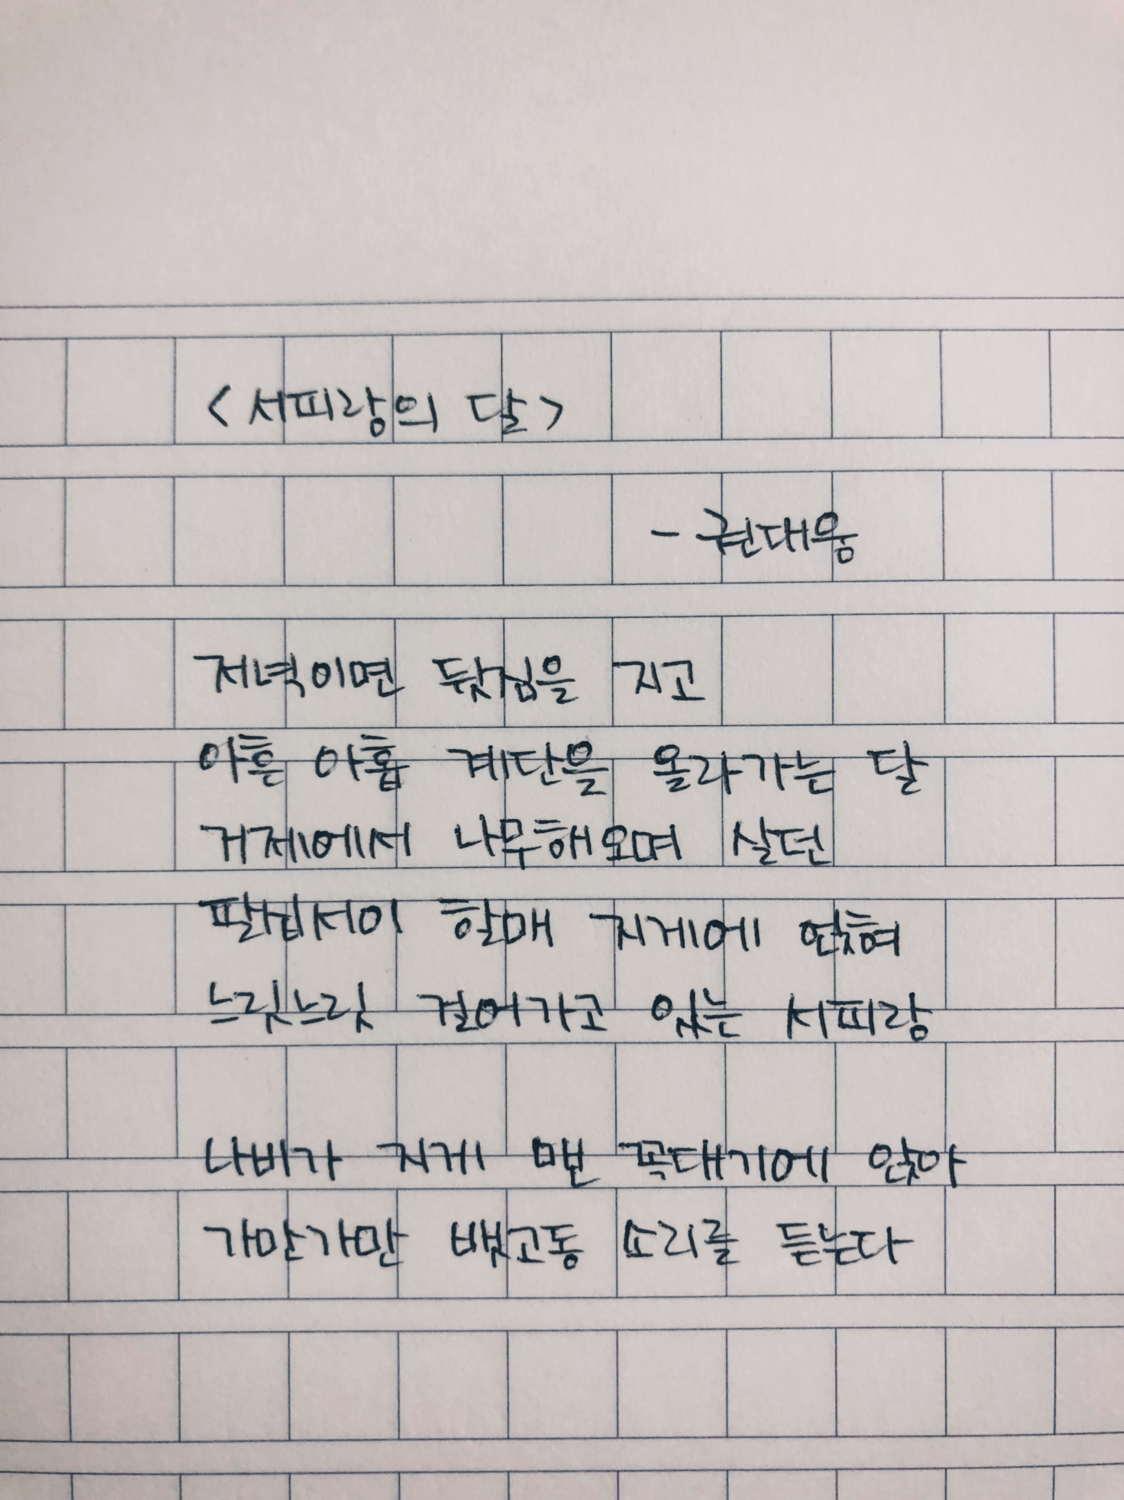 <서피랑의 달>
- 권대웅
저녁이면 뒷짐을 지고
아흔 아홉 계단을 올라가는 달
거제에서 나무해오며 살던
팔십서이 할매 지게에 얹혀
느릿느릿 걸어가고 있는 서피랑
나비가 지게 맨 꼭대기에 앉아
가만가만 뱃고동 소리를 듣는다